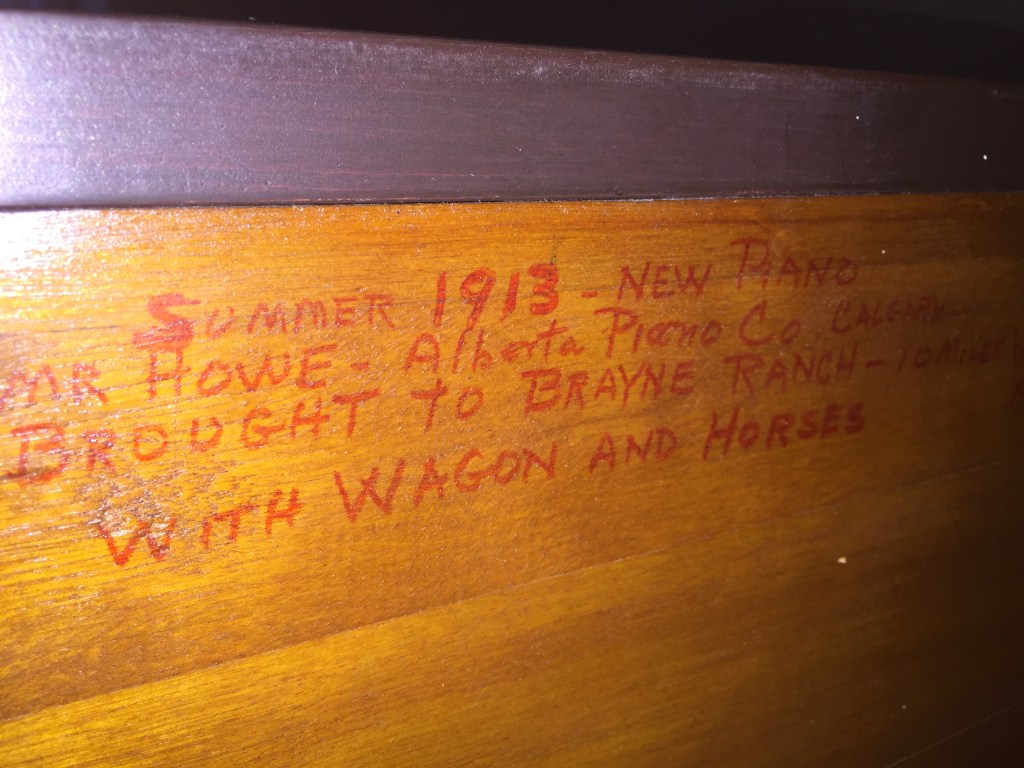 SUMMER 1913 - NEW PIANO
MR HOWE - Alberta Piano Co. CALGARY
BROUGHT TO BRAYNE RANCH - 10 MILES
WITH WAGON AND HORSES